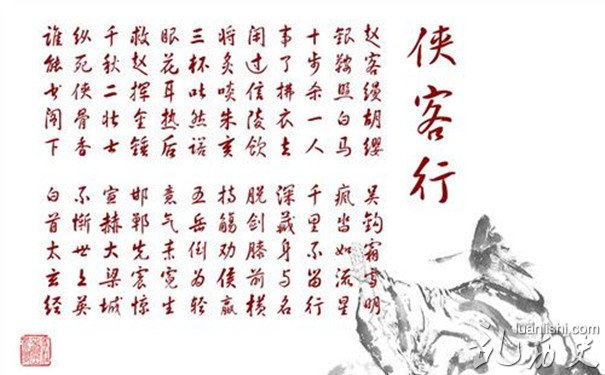 侠客行
赵客缦胡缨 吴钩霜雪明
银鞍照白马 飒沓如流星
十步杀一人 千里不留行
事了拂衣去 深藏身与名
闲过信陵饮 脱剑膝前横
将炙啖朱亥 持觞劝侯嬴
三杯吐然诺 五岳倒为轻
眼花耳热后 意气素霓生
救赵挥金锤 邯郸先震惊
千秋二壮士 宣赫大梁城
纵死侠骨香 不惭世上英
谁能书阁下 白首太玄经
luanlishi.com
乱历史